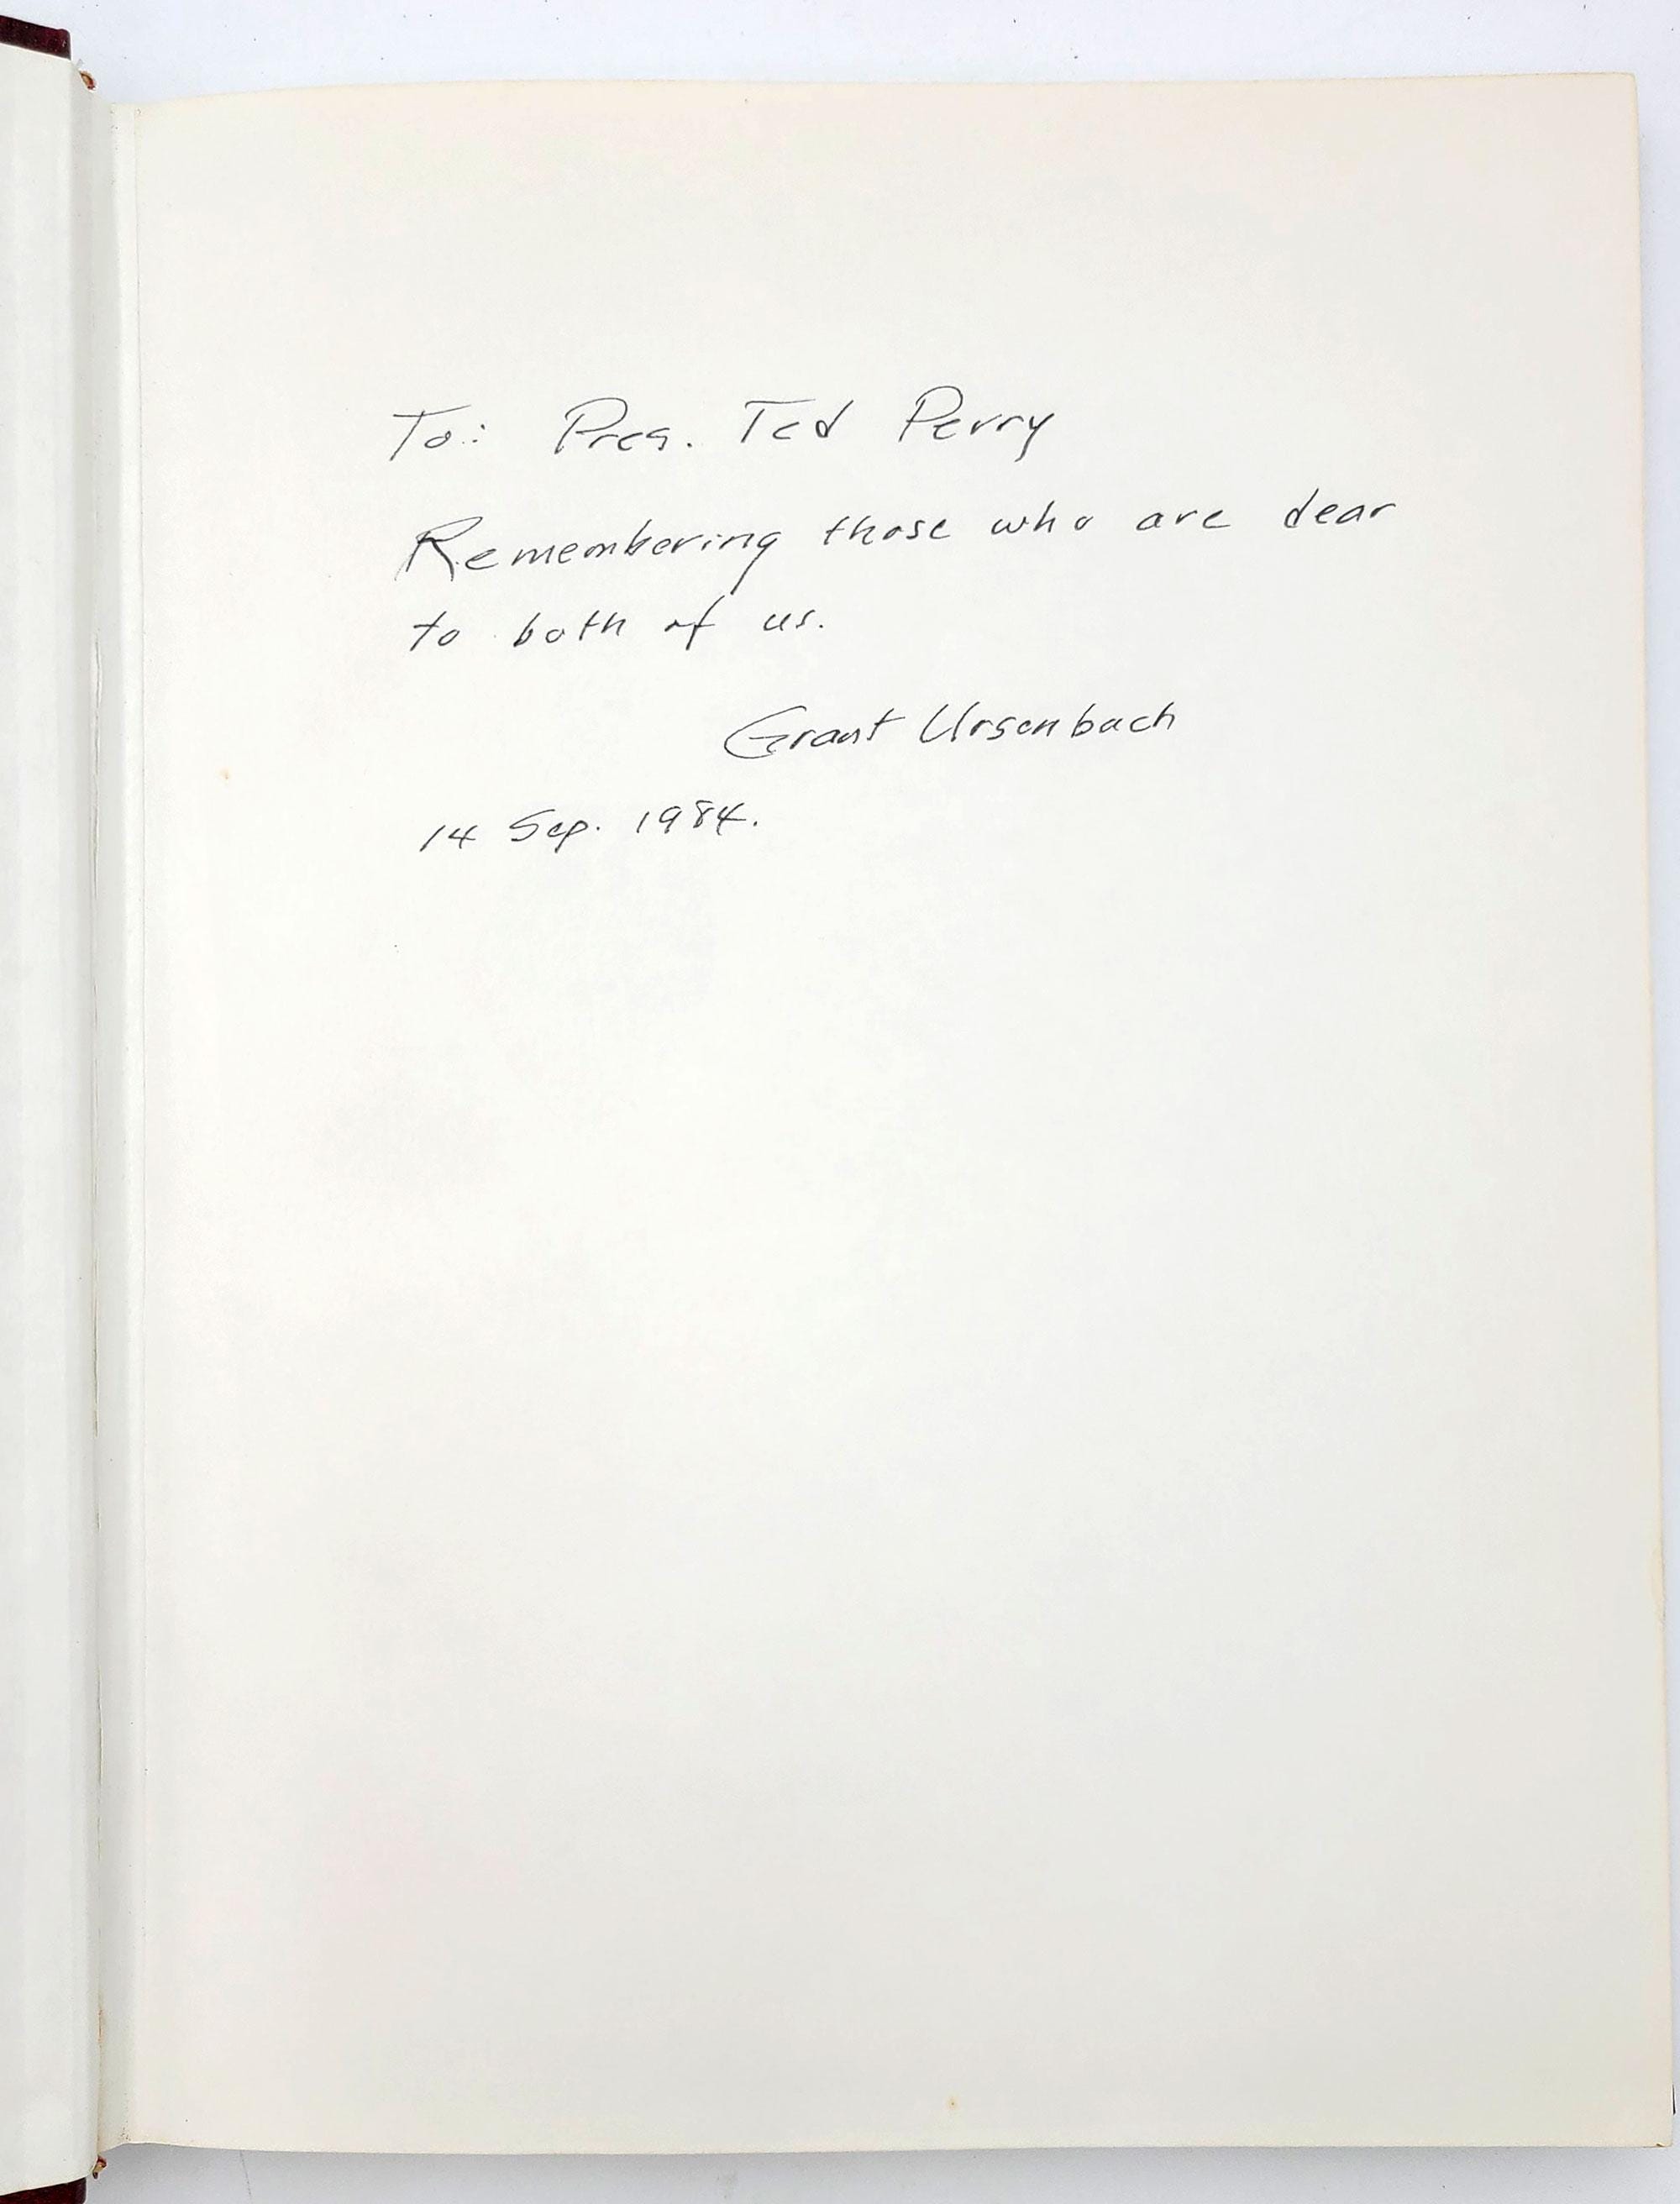 To: Pres. Ted Perry
Remembering those who are dear
to both of us.
Grant Ursenbach
14 Sep. 1984.